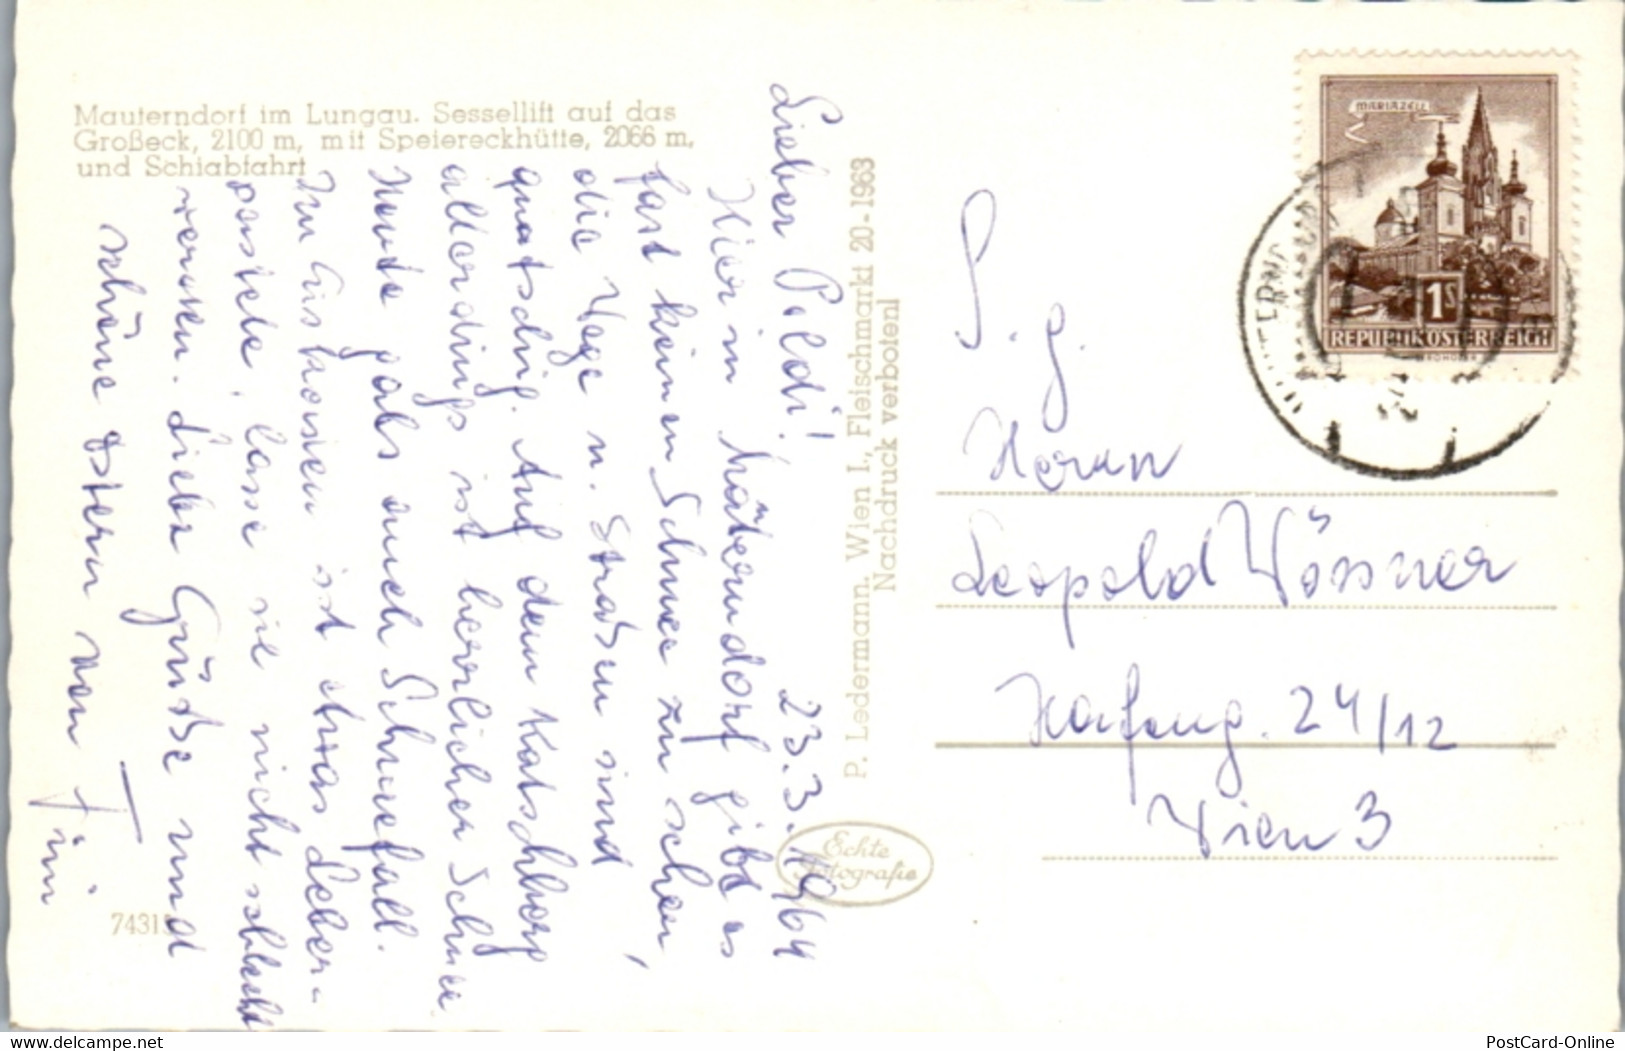 Mauterndorf im Lungau. Sessellift auf das
Großeck, 2100 m, mit Speiereckhütte, 2066 m,
und Schiabfahrt
Lieber Poldi! 23.3.1964
Hier in Mauterndorf gibt es
fast keinen Schnee zu sehen,
die Wege u. Straßen sind
quatschig. Auf dem Katschberg
allerdings ist herrlicher Schnee
Heute gabs auch Schneefall.
Im Gusthosen ist etwas Leber-
pastete, lasse sie nicht schlecht
werden. Liebe Grüße und
schöne Ostern von
P. Ledermann, Wien I., Fleischmarkt 20-1963
Nachdruck verboten!
Echte
Fotografie
MARIAZELL
1S
REPUBLIK ÖSTERREICH
S. g.
Herrn
Leopold Wössner
Hafeng. 24/12
Wien 3
my-main-store.com
PostCard-Online